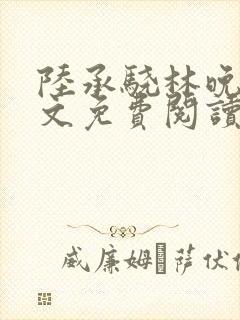 陸承驍林晚
文免費閱讀
威廉姆 萨伏